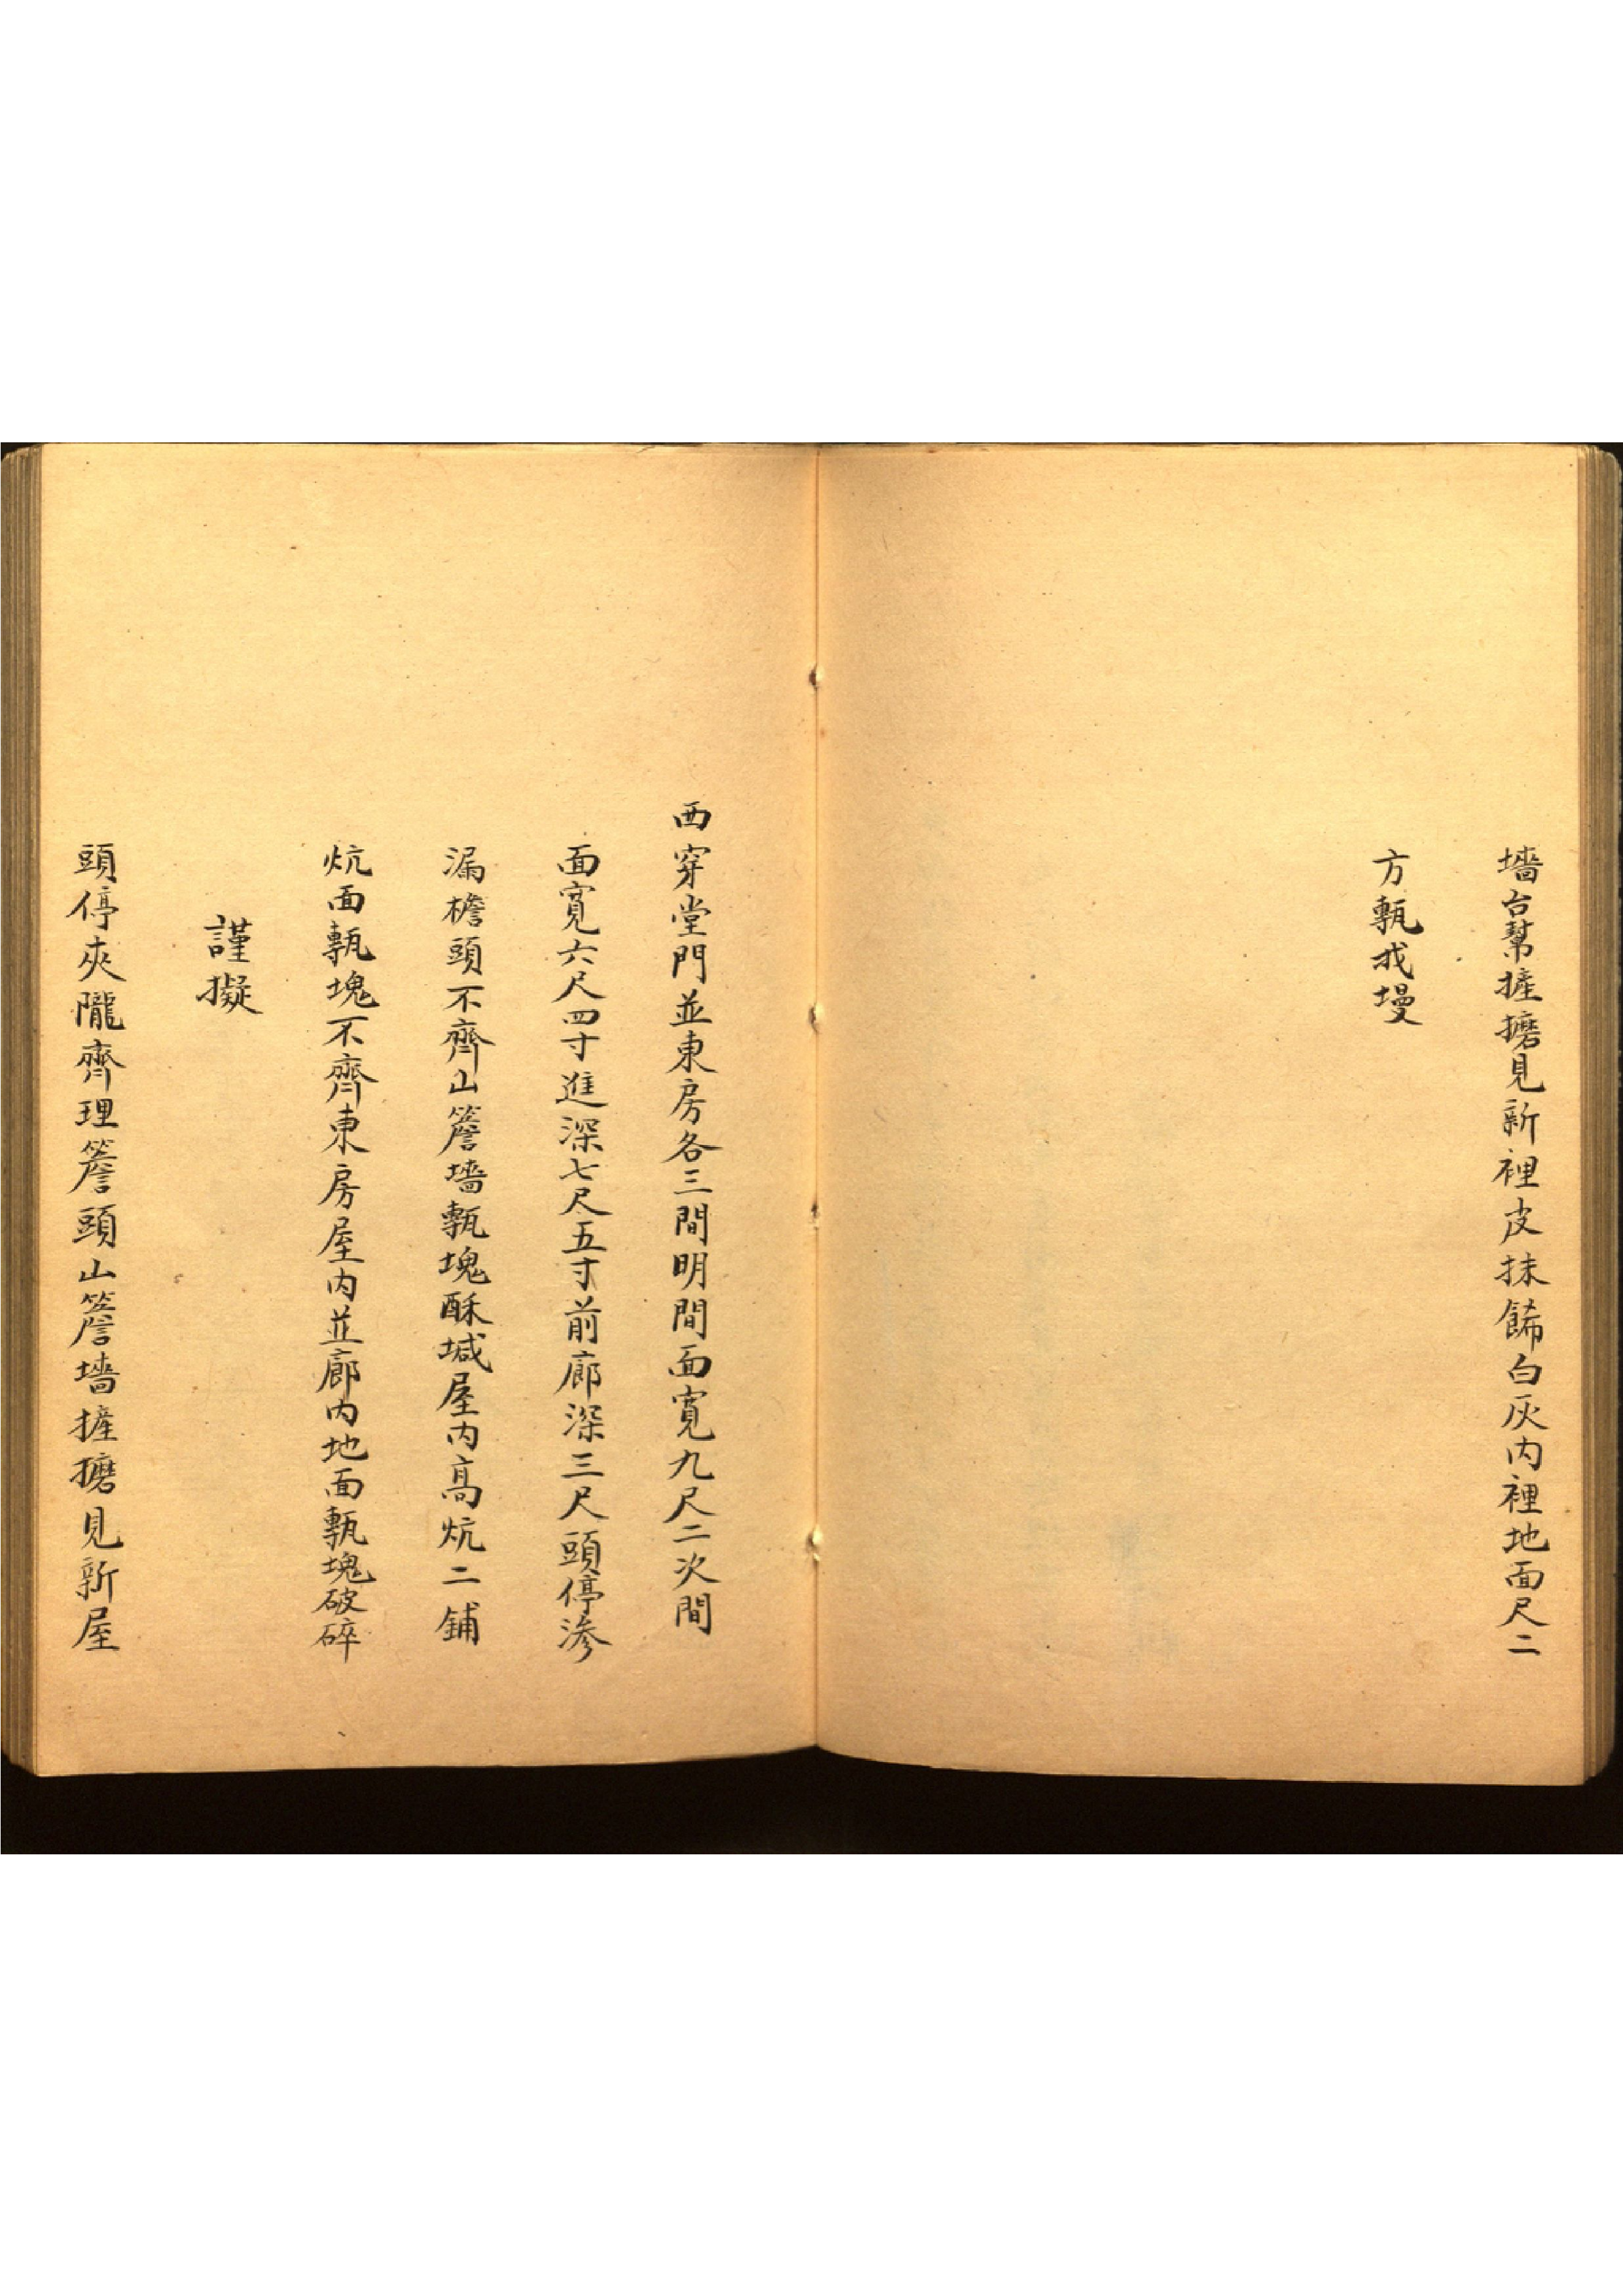 墻台幫摌䃺見新裡皮抹餙白灰内裡地面尺二
方甎找墁
西穿堂門並東房各三間明間面寬九尺二次間
面寬六尺四寸進深七尺五寸前廊深三尺頭停滲
漏檐頭不齊山簷墻甎塊酥堿屋内高炕二鋪
炕面甎塊不齊東房屋内並廊内地面甎塊破碎
謹擬
頭停夾隴齊理簷頭山簷墻摌磨見新屋